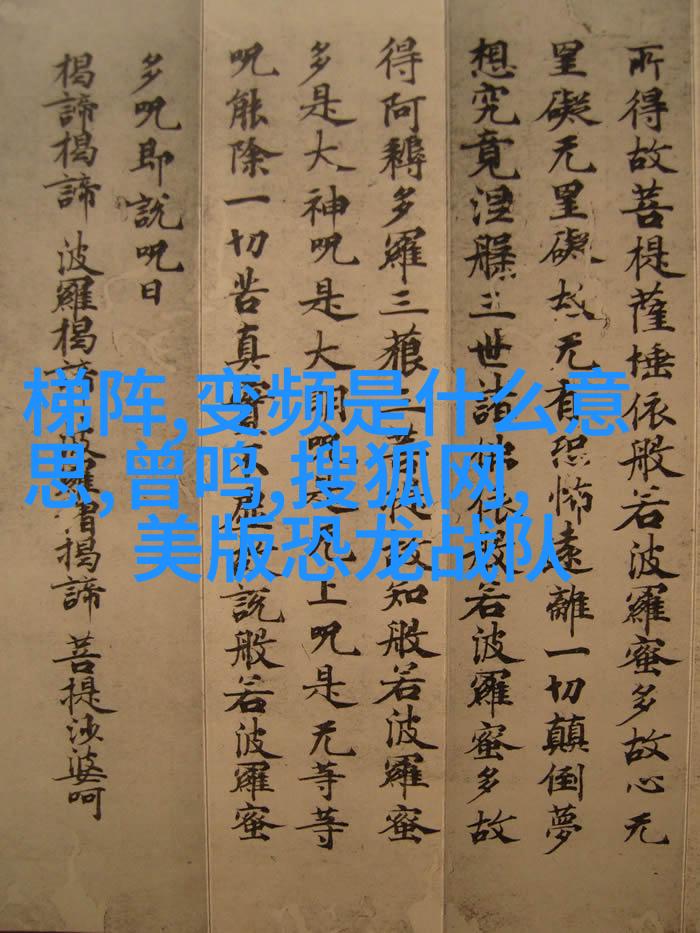 所得故菩提薩埵依般若波羅蜜多故心无
罣礙无罣礙故无有恐怖遠離一切顛倒夢
想究竟涅槃三世諸佛依般若波羅蜜多故
得阿耨多羅三藐三菩提故知般若波羅蜜
多是大神呪是大明呪是无上呪是无等等
呪能除一切苦真實不虛故說般若波羅蜜
多呪即說呪曰
揭諦揭諦 波羅揭諦 波羅僧揭諦 菩提沙婆呵
梯阵,变频是什么意
思,曾鸣,搜狐网,
美版恐龙战队